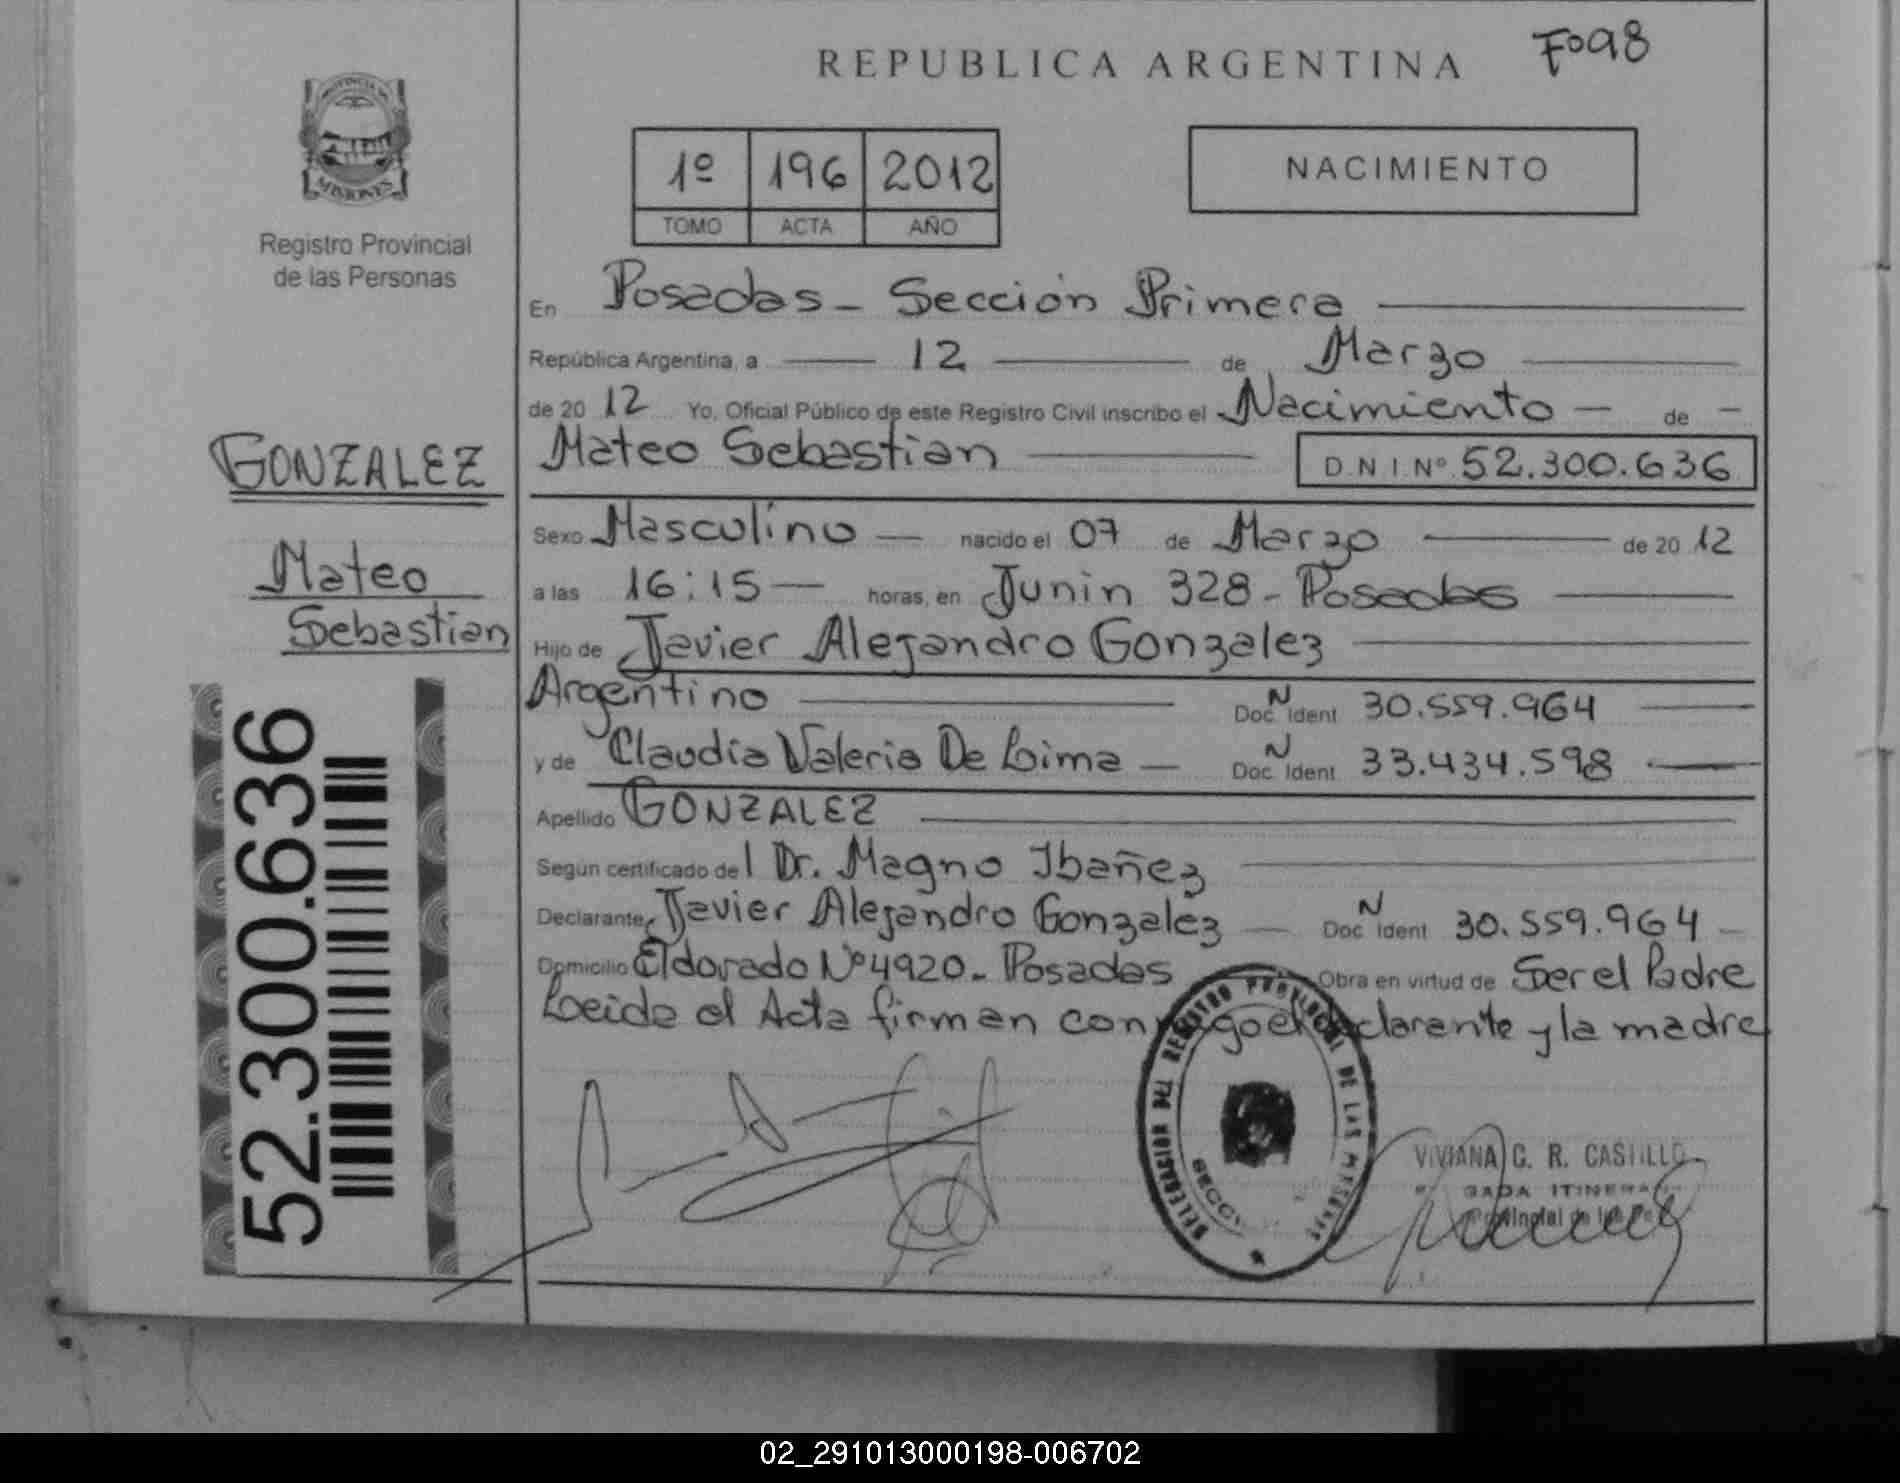 REPUBLICA ARGENTINA
Fº98
PROVINCIA DE
MISIONES
Registro Provincial
de las Personas
1º 196 2012
TOMO ACTA AÑO
NACIMIENTO
En Posadas - Sección Primera
República Argentina, a 12 de Marzo
de 20 12 Yo, Oficial Público de este Registro Civil inscribo el Nacimiento - de -
Mateo Sebastian D.N.I.Nº 52.300.636
GONZALEZ
Mateo
Sebastian
52.300.636
Sexo Masculino nacido el 07 de Marzo de 20 12
a las 16:15 horas, en Junin 328 - Posadas
Hijo de Javier Alejandro Gonzalez
Argentino Doc. N Ident 30.559.964
y de Claudia Valeria De Lima Doc. N Ident 33.434.598
Apellido GONZALEZ
Según certificado del Dr. Magno Ibañez
Declarante Javier Alejandro Gonzalez Doc N Ident 30.559.964
Domicilio Eldorado Nº 4920 - Posadas Obra en virtud de Ser el Padre
Leida el Acta firman conmigo el declarante y la madre
DELEGACION DEL REGISTRO PROVINCIAL DE LAS PERSONAS
VIVIANA C. R. CASTILLO
02_291013000198-006702